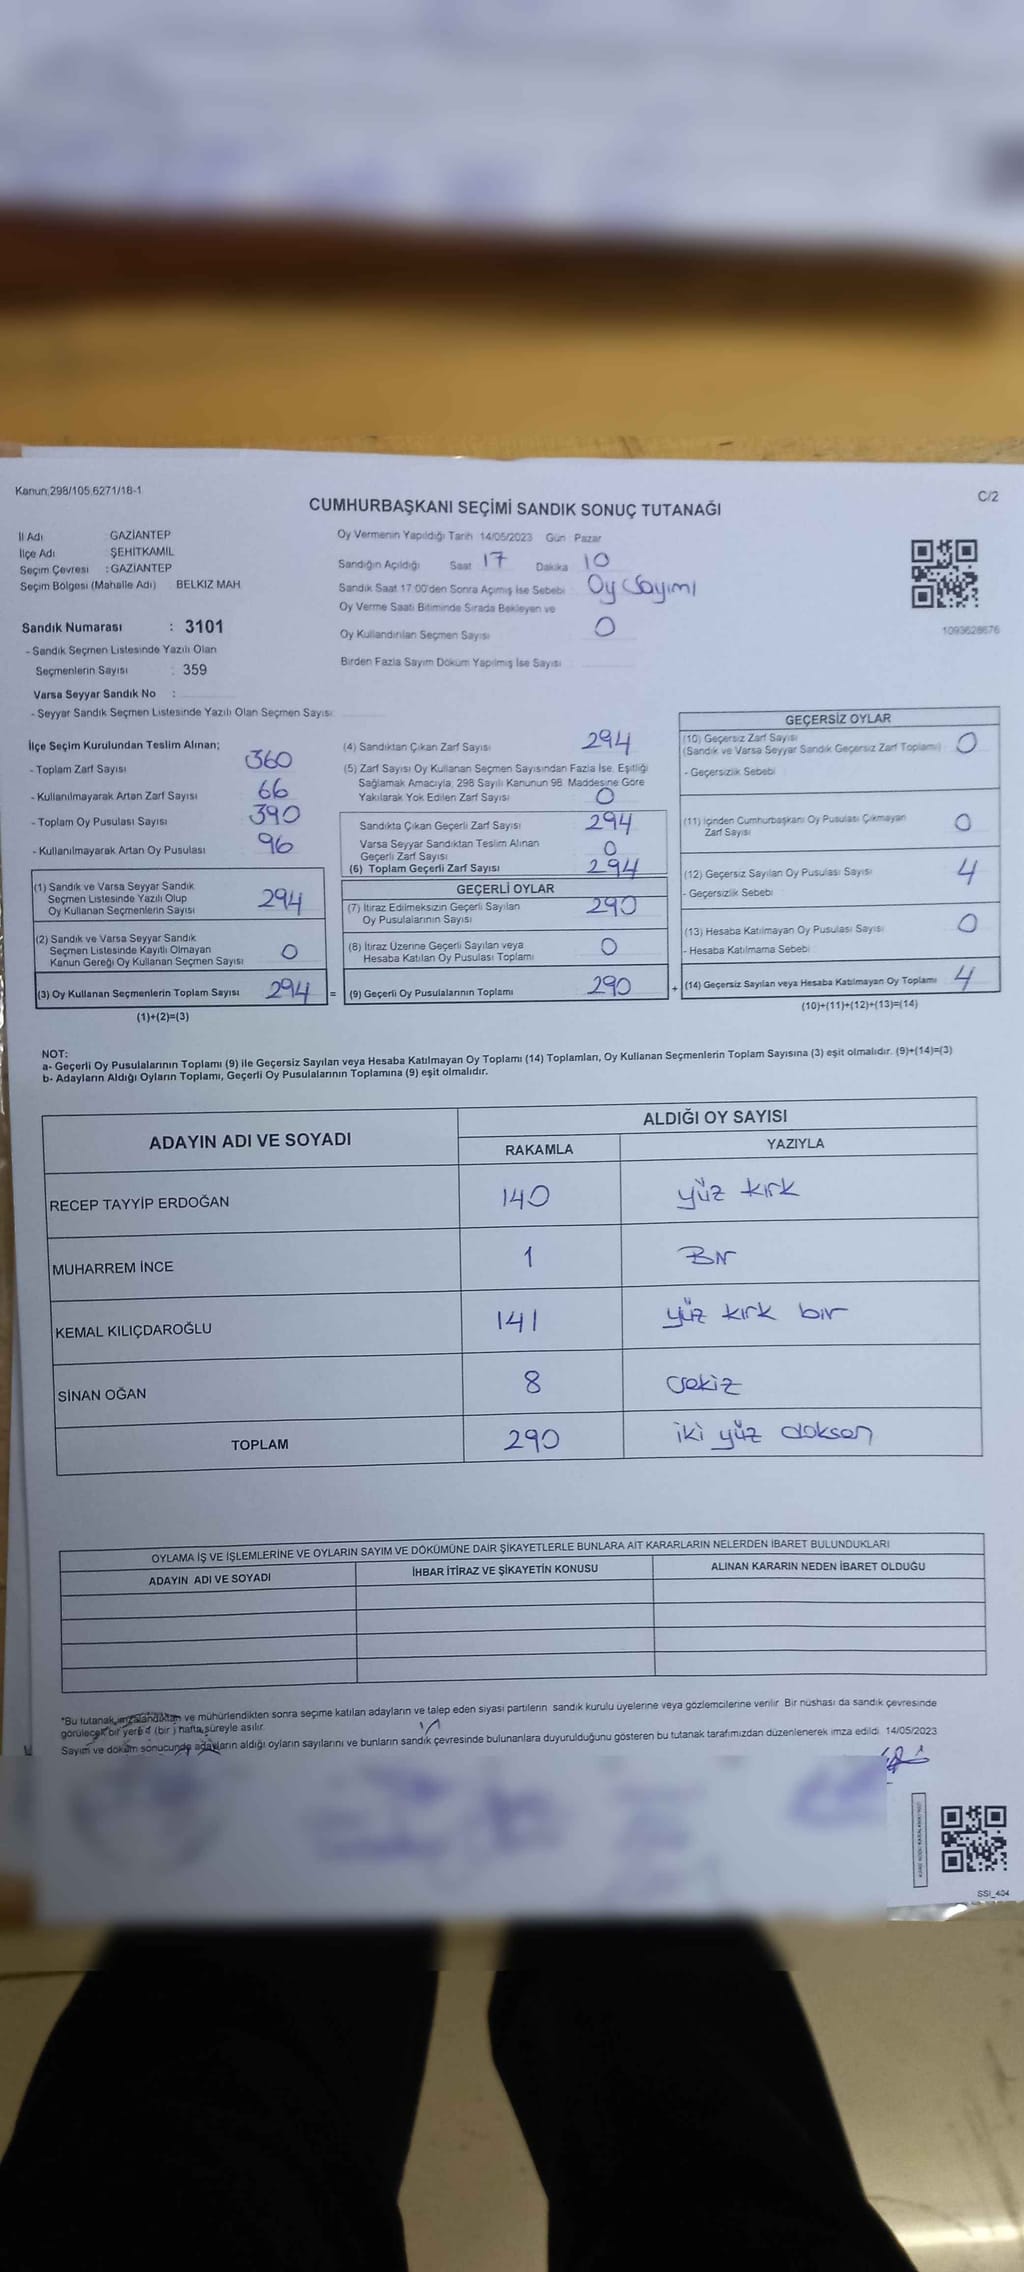 Kanun;298/105,6271/18-1
C/2
CUMHURBAŞKANI SEÇİMİ SANDIK SONUÇ TUTANAĞI
İl Adı : GAZİANTEP
İlçe Adı : ŞEHİTKAMİL
Seçim Çevresi : GAZİANTEP
Seçim Bölgesi (Mahalle Adı) BELKIZ MAH.
Sandık Numarası : 3101
- Sandık Seçmen Listesinde Yazılı Olan
Seçmenlerin Sayısı : 359
Varsa Seyyar Sandık No :
- Seyyar Sandık Seçmen Listesinde Yazılı Olan Seçmen Sayısı
Oy Vermenin Yapıldığı Tarih 14/05/2023 Gün : Pazar
Sandığın Açıldığı Saat 17 Dakika 10
Sandık Saat 17:00'den Sonra Açımış İse Sebebi : Oy Sayımı
Oy Verme Saati Bitiminde Sırada Bekleyen ve
Oy Kullandırılan Seçmen Sayısı 0
Birden Fazla Sayım Döküm Yapılmış İse Sayısı
1093628676
İlçe Seçim Kurulundan Teslim Alınan;
- Toplam Zarf Sayısı 360
- Kullanılmayarak Artan Zarf Sayısı 66
- Toplam Oy Pusulası Sayısı 390
- Kullanılmayarak Artan Oy Pusulası 96
(1) Sandık ve Varsa Seyyar Sandık
Seçmen Listesinde Yazılı Olup
Oy Kullanan Seçmenlerin Sayısı 294
(2) Sandık ve Varsa Seyyar Sandık
Seçmen Listesinde Kayıtlı Olmayan
Kanun Gereği Oy Kullanan Seçmen Sayısı 0
(3) Oy Kullanan Seçmenlerin Toplam Sayısı 294 =
(1)+(2)=(3)
(4) Sandıktan Çıkan Zarf Sayısı 294
(5) Zarf Sayısı Oy Kullanan Seçmen Sayısından Fazla İse, Eşitliği
Sağlamak Amacıyla, 298 Sayılı Kanunun 98. Maddesine Göre
Yakılarak Yok Edilen Zarf Sayısı 0
Sandıkta Çıkan Geçerli Zarf Sayısı 294
Varsa Seyyar Sandıktan Teslim Alınan
Geçerli Zarf Sayısı 0
(6) Toplam Geçerli Zarf Sayısı 294
GEÇERLİ OYLAR
(7) İtiraz Edilmeksizin Geçerli Sayılan
Oy Pusulalarının Sayısı 290
(8) İtiraz Üzerine Geçerli Sayılan veya
Hesaba Katılan Oy Pusulası Toplamı 0
(9) Geçerli Oy Pusulalarının Toplamı 290 +
GEÇERSİZ OYLAR
(10) Geçersiz Zarf Sayısı
(Sandık ve Varsa Seyyar Sandık Geçersiz Zarf Toplamı) 0
- Geçersizlik Sebebi
(11) İçinden Cumhurbaşkanı Oy Pusulası Çıkmayan
Zarf Sayısı 0
(12) Geçersiz Sayılan Oy Pusulası Sayısı 4
- Geçersizlik Sebebi
(13) Hesaba Katılmayan Oy Pusulası Sayısı 0
- Hesaba Katılmama Sebebi
(14) Geçersiz Sayılan veya Hesaba Katılmayan Oy Toplamı 4
(10)+(11)+(12)+(13)=(14)
NOT:
a- Geçerli Oy Pusulalarının Toplamı (9) ile Geçersiz Sayılan veya Hesaba Katılmayan Oy Toplamı (14) Toplamları, Oy Kullanan Seçmenlerin Toplam Sayısına (3) eşit olmalıdır. (9)+(14)=(3)
b- Adayların Aldığı Oyların Toplamı, Geçerli Oy Pusulalarının Toplamına (9) eşit olmalıdır.
ADAYIN ADI VE SOYADI ALDIĞI OY SAYISI
RAKAMLA YAZIYLA
RECEP TAYYİP ERDOĞAN 140 yüz kırk
MUHARREM İNCE 1 Bir
KEMAL KILIÇDAROĞLU 141 yüz kırk bir
SİNAN OĞAN 8 sekiz
TOPLAM 290 iki yüz doksan
OYLAMA İŞ VE İŞLEMLERİNE VE OYLARIN SAYIM VE DÖKÜMÜNE DAİR ŞİKAYETLERLE BUNLARA AİT KARARLARIN NELERDEN İBARET BULUNDUKLARI
ADAYIN ADI VE SOYADI İHBAR İTİRAZ VE ŞİKAYETİN KONUSU ALINAN KARARIN NEDEN İBARET OLDUĞU
*Bu tutanak, imzalandıktan ve mühürlendikten sonra seçime katılan adayların ve talep eden siyasi partilerin sandık kurulu üyelerine veya gözlemcilerine verilir. Bir nüshası da sandık çevresinde
görülecek bir yere 1 (bir) hafta süreyle asılır.
Sayım ve döküm sonucunda adayların aldığı oyların sayılarını ve bunların sandık çevresinde bulunanlara duyurulduğunu gösteren bu tutanak tarafımızdan düzenlenerek imza edildi. 14/05/2023
SSI_404